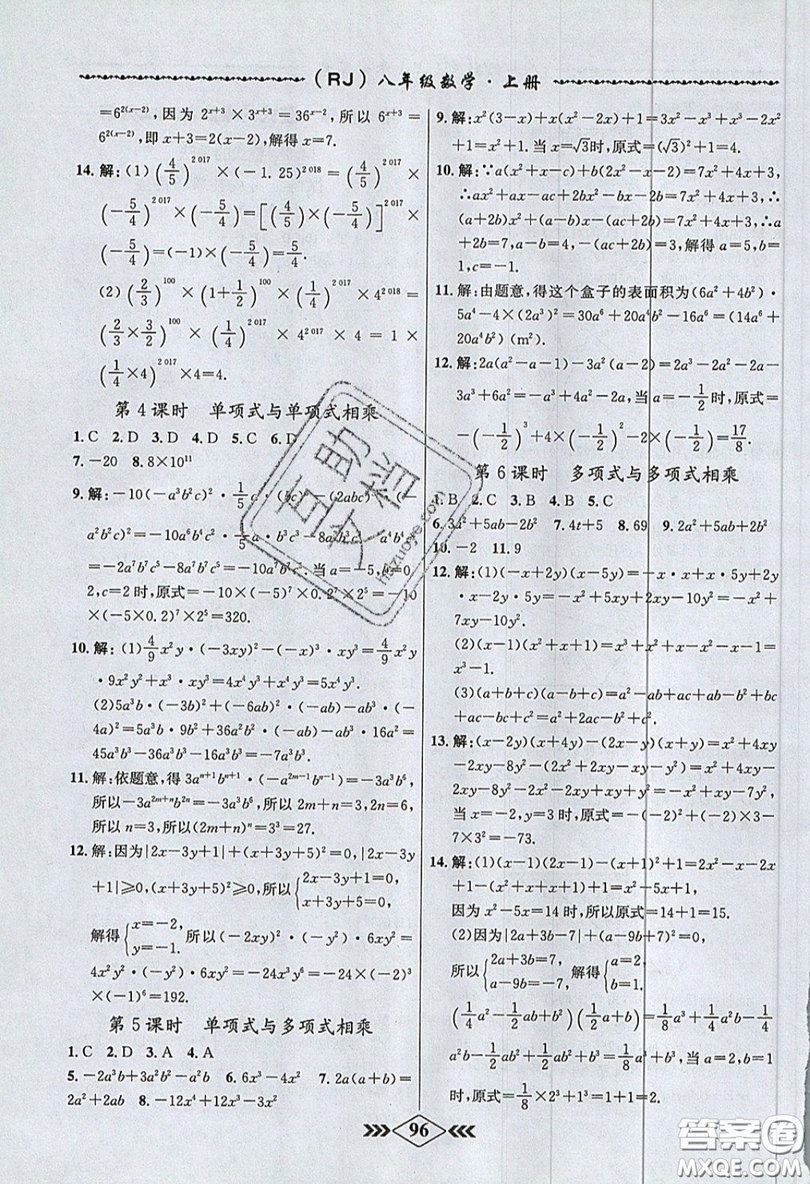 (RJ)八年级数学·上册
=6^{2(x-2)}，因为 2^{x+3}×3^{x+3}=36^{x-2}，所以 6^{x+3}=
6^{2(x-2)}，即 x+3=2(x-2)，解得 x=7.
14. 解：(1)(4/5)^{2017}×(-1.25)^{2018}=(4/5)^{2017}×
(-5/4)^{2017}×(-5/4)=[(4/5)×(-5/4)]^{2017}×
(-5/4)=(-1)×(-5/4)=5/4.
(2)(2/3)^{100}×(1+1/2)^{100}×(1/4)^{2017}×4^{2018}=
(2/3×3/2)^{100}×(1/4)^{2017}×4^{2017}×4=1×
(1/4×4)^{2017}×4=4.
第4课时 单项式与单项式相乘
1. C 2. D 3. D 4. D 5. C 6. D
7. -20 8. 8×10^{11}
9. 解：-10(-a³b²c)²·1/5a·(bc)³-(2abc)³·(-
a²b²c)²=-10a⁶b⁴c²·1/5a·b³c³-8a³b³c³·a⁴b⁴c²
=-2a⁷b⁷c⁵-8a⁷b⁷c⁵=-10a⁷b⁷c⁵. 当 a=-5，b=0.2，
c=2时，原式=-10×(-5)⁷×0.2⁷×2⁵=-10
×(-5×0.2)⁷×2⁵=320.
10. 解：(1)4/9x²y·(-3xy)²-(-x)³·xy³=4/9x²y
·9x²y²+x³·xy³=4x⁴y³+x⁴y³=5x⁴y³.
(2)5a³b·(-3b)²+(-6ab)²·(-ab)-ab³·(-
4a)²=5a³b·9b²+36a²b²·(-ab)-ab³·16a²=
45a³b³-36a³b³-16a³b³=-7a³b³.
11. 解：依题意，得 3a^{n+1}b^{n+1}·(-a^{2m-1}b^{n-1})=-3a³b⁶，
所以-3a^{2m+n}b^{2n}=-3a³b⁶，所以 2m+n=3，2n=6，
所以 n=3，所以(2m+n)ⁿ=3³=27.
12. 解：因为|2x-3y+1|+(x+3y+5)²=0，|2x-3y
+1|≥0，(x+3y+5)²≥0，所以{2x-3y+1=0，
x+3y+5=0，
解得{x=-2，所以(-2xy)²·(-y²)·6xy²=
y=-1.
4x²y²·(-y²)·6xy²=-24x³y⁶=-24×(-2)³
×(-1)⁶=192.
第5课时 单项式与多项式相乘
1. C 2. D 3. A 4. A
5. -2a³b+3a²b²-ab² 6. 6x³-4x² 7. 2a(a+b)=
2a²+2ab 8. -12x⁴+12x³-3x²
9. 解：x²(3-x)+x(x²-2x)+1=3x²-x³+x³-2x²
+1=x²+1. 当 x=√3时，原式=(√3)²+1=4.
10. 解：∵a(x²+x-c)+b(2x²-x-2)=7x²+4x+3，
∴ax²+ax-ac+2bx²-bx-2b=7x²+4x+3，∴
(a+2b)x²+(a-b)x-(ac+2b)=7x²+4x+3，∴a
+2b=7，a-b=4，-(ac+2b)=3，解得 a=5，b=
1，c=-1.
11. 解：由题意，得这个盒子的表面积为(6a²+4b²)·
5a⁴-4×(2a³)²=30a⁶+20a⁴b²-16a⁶=(14a⁶+
20a⁴b²)(m²).
12. 解：2a(a²-a-1)-3a(a²-2)=2a³-2a²-2a-
3a³+6a=-a³-2a²+4a，当 a=-1/2时，原式=
-(-1/2)³+4×(-1/2)²-2×(-1/2)=17/8.
第6课时 多项式与多项式相乘
1. B 2. C 3. B 4. B 5. C
6. 3a²+5ab-2b² 7. 4t+5 8. 69 9. 2a²+5ab+2b²
10. -2 11. 9
12. 解：(1)(-x+2y)(x-5y)=-x·x+x·5y+2y
·x-2y·5y=-x²+5xy+2xy-10y²=-x²+
7xy-10y².
(2)(x-1)(x²+x+1)=x³+x²+x-x²-x-1
=x³-1.
(3)(a+b+c)(a-b+c)=a²-ab+ac+ab-b²+bc
+ac-bc+c²=a²+2ac-b²+c².
13. 解：(x-2y)(x+4y)-(2x-y)(x-y)=x²+4xy-
2xy-8y²-(2x²-2xy-xy+y²)=x²+4xy-2xy
-8y²-2x²+2xy+xy-y²=-x²+5xy-9y²，
当 x=-2，y=3时，原式=-(-2)²+(-2)×
3-7×3²=-73.
14. 解：(1)(x-1)(2x-1)-(x+1)²+1=2x²-x-2x
+1-(x²+x+x+1)+1=x²-5x+1.
因为 x²-5x=14时，所以原式=14+1=15.
(2)因为|2a+3b-7|+(a-9b+7)²=0，
所以{2a+3b=7，解得{a=2，
a-9b=-7，b=1.
(1/4a²-1/2ab+b²)(1/2a+b)=1/8a³+1/4a²b-
1/4a²b-1/2ab²+1/2ab²+b³=1/8a³+b³，当 a=2，b=1
时，原式=1/8×2³+1³=2.
96
互助文档
hezuoye.com
答案圈
MXQE.COM